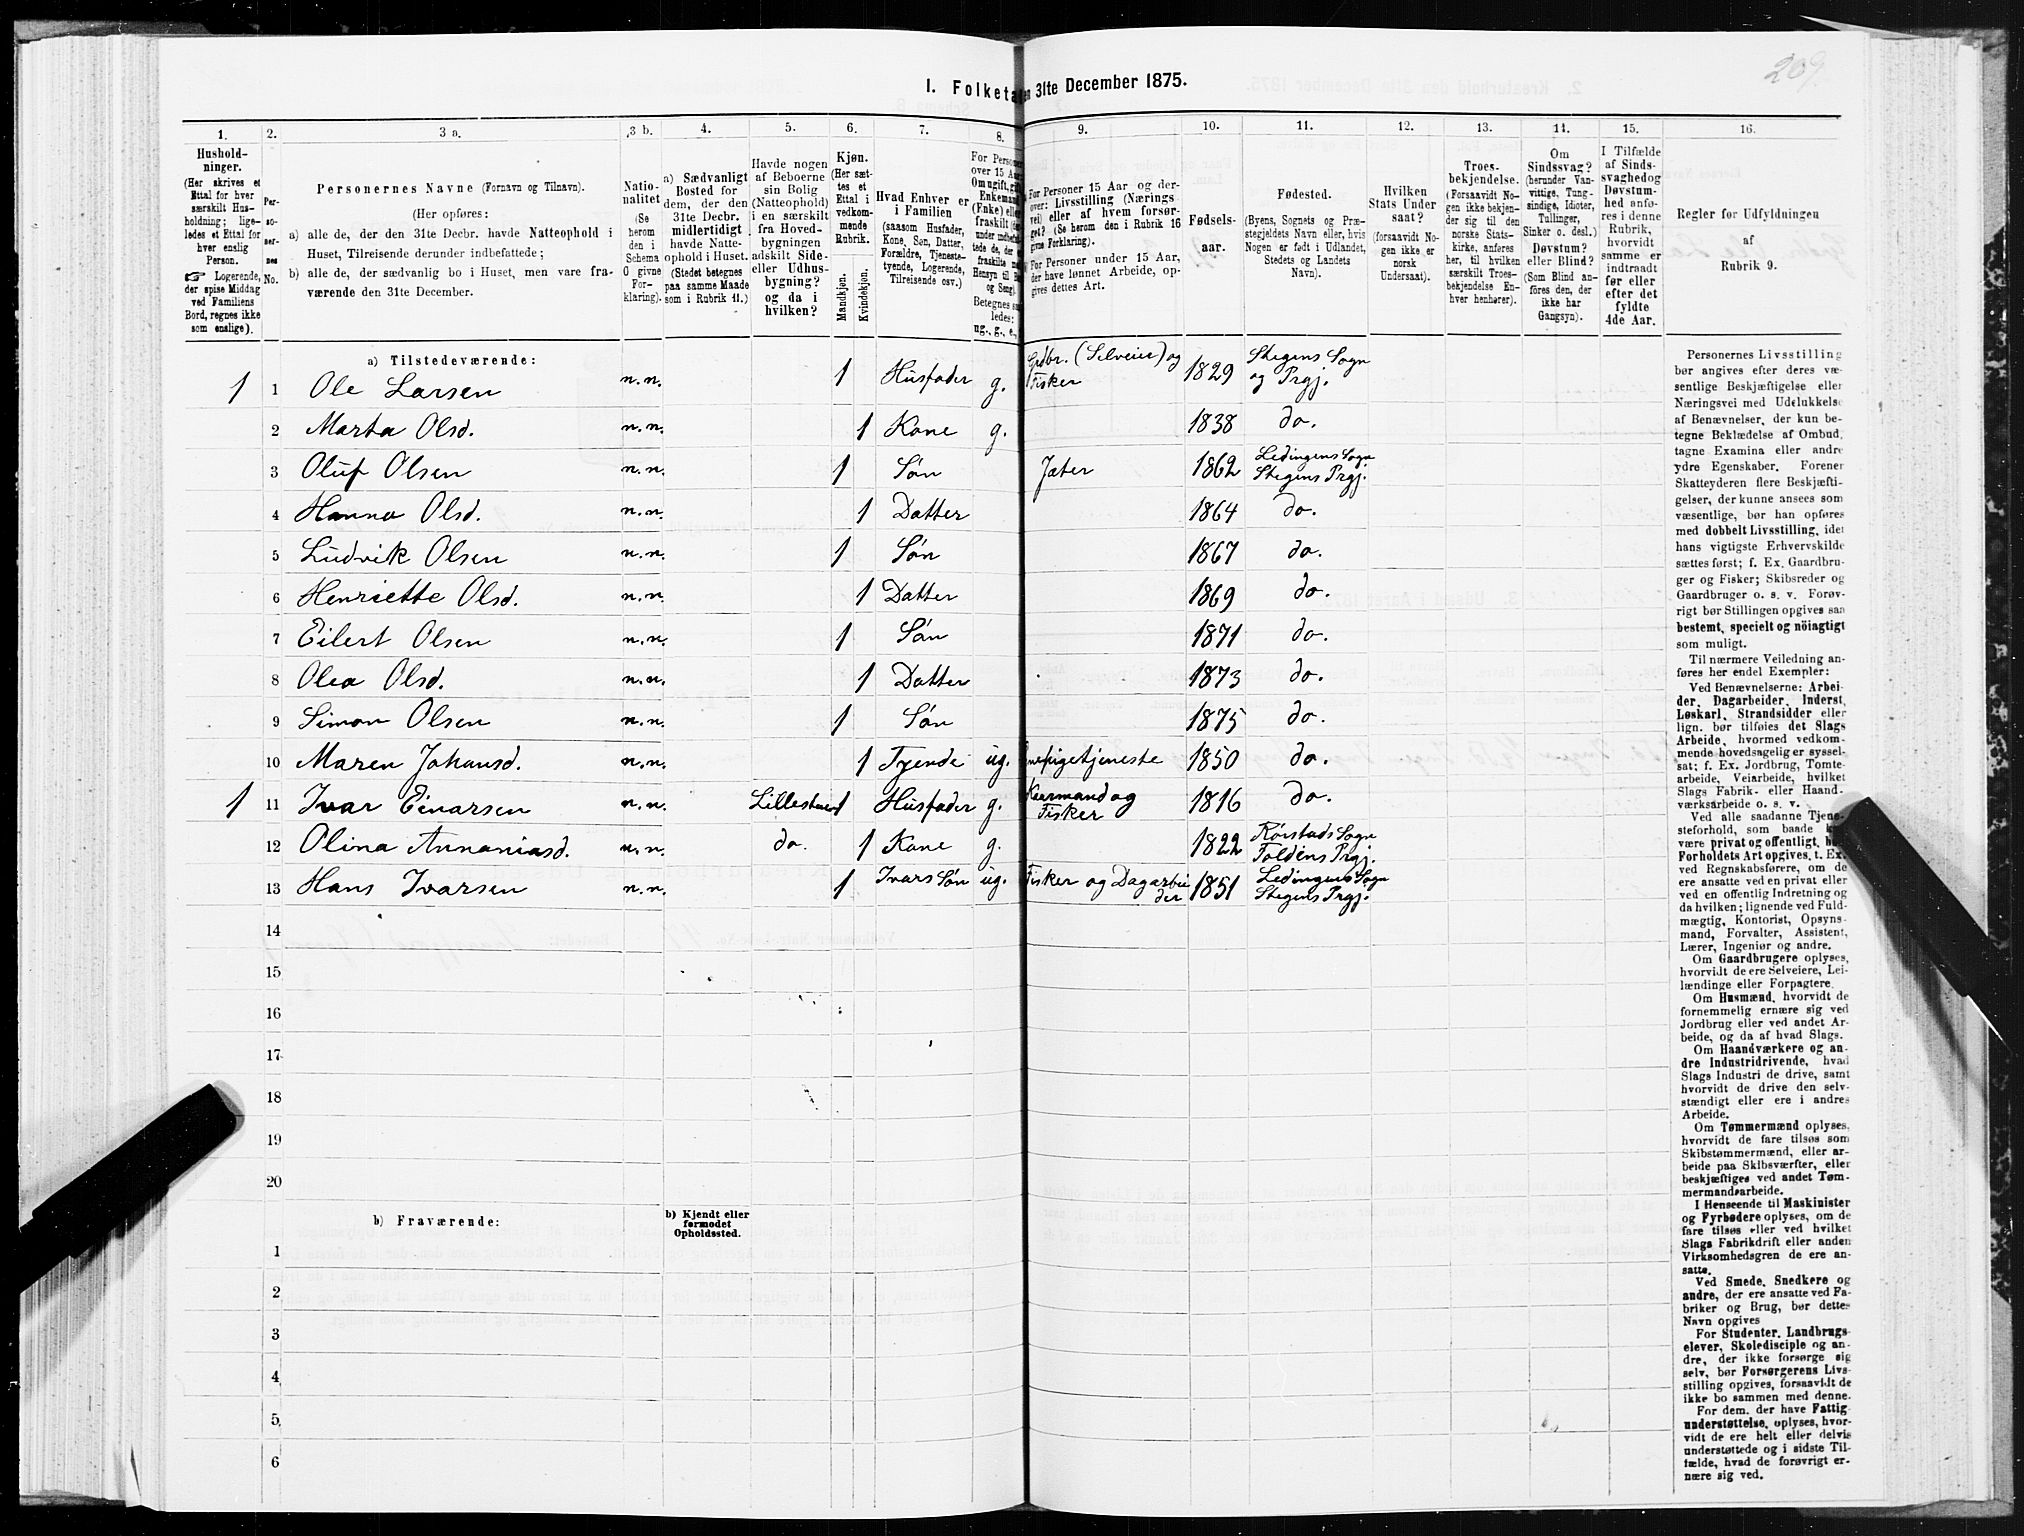 209.
1. Folketa en 31te December 1875.
1. 2. 3 a. 3 b. 4. 5. 6. 7. 8. 9. 10. 11. 12. 13. 14. 15. 16.
Hushold-
ninger.
(Her skrives et
Ettal for hver
særskilt Hus-
holdning; lige-
ledes et Ettal for
hver enslig
Person.
☞ Logerende,
der spise Middag
ved Familiens
Bord, regnes ikke
som enslige).
Per-
so-
ner-
nes
No.
Personernes Navne (Fornavn og Tilnavn).
(Her opføres:
a) alle de, der den 31te Decbr. havde Natteophold i
Huset, Tilreisende derunder indbefattede;
b) alle de, der sædvanlig bo i Huset, men vare fra-
værende den 31te December.
Natio-
nalitet
(Se
herom
den i
Schema
O givne
For-
klaring).
a) Sædvanligt
Bosted for
dem, der den
31te Decbr.
midlertidigt
havde Natte-
ophold i Huset.
(Stedet betegnes
paa samme Maade
som i Rubrik 11.)
Havde nogen
af Beboerne
sin Bolig
(Natteophold)
i en særskilt
fra Hoved-
bygningen
adskilt Side-
eller Udhus-
bygning?
og da i
hvilken?
Kjøn.
(Her sæt-
tes et
Ettal i
vedkom-
mende
Rubrik.
Mandkjøn.
Kvindekjøn.
Hvad Enhver er
i Familien
(saasom Husfader,
Kone, Søn, Datter,
Forældre, Tjeneste-
tyende, Logerende,
Tilreisende osv.)
For Person
over 15 Aar
Om ugift, gift
Enkemand
(Enke) eller
fraskilt
Betegnes
ledes:
ug., g., e.,
For Personer 15 Aar og der-
over: Livsstilling (Nærings-
vei) eller af hvem forsør-
get? (Se herom den i Rubrik 16
givne Forklaring).
For Personer under 15 Aar,
der have lønnet Arbeide, op-
gives dettes Art.
Fødsels-
aar.
Fødested.
(Byens, Sognets og Præ-
stegjeldets Navn eller, hvis
Nogen er født i Udlandet,
Stedets og Landets
Navn).
Hvilken
Stats Under
saat?
(forsaavidt No-
gen ikke er
norsk
Undersaat).
Troes-
bekjendelse.
(Forsaavidt No-
gen ikke bekjen-
der sig til den
norske Stats-
kirke, anføres
her, til hvilken
særskilt Troes-
bekjendelse En-
hver henhører).
Om
Sindssvag?
(herunder Van-
vittige, Tung-
sindige, Idioter,
Tullinger,
Sinker o. desl.)
Døvstum?
eller Blind?
(Som Blind an-
føres den, der
ikke har
Gangsyn).
I Tilfælde
af Sinds-
svaghedog
Døvstum-
hed anfø-
res i denne
Rubrik,
hvorvidt
samme er
indtraadt
før eller
efter det
fyldte
4de Aar.
Regler for Udfyldningen
af
Rubrik 9.
a) Tilstedeværende:
1 1 Ole Larsen n.n. 1 Husfader g. Grdbr. (Selveier) og Fisker 1829 Stegens Sogn og Prgj.
2 Marta Olsd. n.n. 1 Kone g. 1838 do.
3 Oluf Olsen n.n. 1 Søn Jæter 1862 Ledingens Sogn Stegens Prgj.
4 Hanna Olsd. n.n. 1 Datter 1864 do.
5 Ludvik Olsen n.n. 1 Søn 1867 do.
6 Henriette Olsd. n.n. 1 Datter 1869 do.
7 Eilert Olsen n.n. 1 Søn 1871 do.
8 Olea Olsd. n.n. 1 Datter 1873 do.
9 Simon Olsen n.n. 1 Søn 1875 do.
10 Maren Johansd. n.n. 1 Tyende ug. pigetjeneste 1850 do.
1 11 Ivar Einarsen n.n. Lillestuen 1 Husfader g. Kaarmand og Fisker 1816 do.
12 Olina Annaniasd. n.n. do. 1 Kone g. 1822 Rørstads Sogn Foldens Prgj.
13 Hans Ivarsen n.n. 1 Ivars Søn ug. Fisker og Dagarbeider 1851 Ledingens Sogn Stegens Prgj.
14
15
16
17
18
19
20
b) Fraværende:
b) Kjendt eller
formodet
Opholdssted.
1
2
3
4
5
6
Personernes Livsstilling
bør angives efter deres væ-
sentlige Beskjæftigelse eller
Næringsvei med Udelukkelse
af Benævnelser, der kun be-
tegne Beklædelse af Ombud,
tagne Examina eller andre
ydre Egenskaber. Forener
Skatteyderen flere Beskjæfti-
gelser, der kunne ansees som
væsentlige, bør han opføres
med dobbelt Livsstilling, idet
hans vigtigste Erhvervskilde
sættes først; f. Ex. Gaardbru-
ger og Fisker; Skibsreder og
Gaardbruger o. s. v. Forøv-
rigt bør Stillingen opgives saa
bestemt, specielt og nöiagtigt
som muligt.
Til nærmere Veiledning an-
føres her endel Exempler:
Ved Benævnelserne: Arbei-
der, Dagarbeider, Inderst,
Løskarl, Strandsidder eller
lign. bør tilføies det Slags
Arbeide, hvormed vedkom-
mende hovedsagelig er syssel-
sat; f. Ex. Jordbrug, Tomte-
arbeide, Veiarbeide, hvilket
Slags Fabrik- eller Haand-
værksarbeide o. s. v.
Ved alle saadanne Tjene-
steforhold, som baade kan
være privat og offentligt, bør
Forholdets Art opgives, t. Ex.
ved Regnskabsførere, om de
ere ansatte ved en privat eller
ved en offentlig Indretning og
da hvilken; lignende ved Fuld-
mægtig, Kontorist, Opsyns-
mand, Forvalter, Assistent,
Lærer, Ingeniør og andre.
Om Gaardbrugere oplyses,
hvorvidt de ere Selveiere, Lei-
lændinge eller Forpagtere.
Om Husmænd, hvorvidt de
fornemmelig ernære sig ved
Jordbrug eller ved andet Ar-
beide, og da af hvad Slags.
Om Haandværkere og an-
dre Industridrivende, hvad
Slags Industri de drive, samt
hvorvidt de drive den selv-
stændigt eller ere i andres
Arbeide.
Om Tømmermænd oplyses,
hvorvidt de fare tilsøs som
Skibstømmermænd, eller ar-
beide paa Skibsværfter, eller
beskjæftiges ved andet Tøm-
mermandsarbeide.
I Henseende til Maskinister
og Fyrbødere oplyses, om de
fare tilsøs eller ved hvilket
Slags Fabrikdrift eller anden
Virksomhedsgren de ere an-
satte.
Ved Smede, Snedkere og
andre, der ere ansatte ved Fa-
briker og Brug, bør dettes
Navn opgives
For Studenter, Landbrugs-
elever, Skoledisciple og an-
dre, der ikke forsørge sig
selv, bør Forsørgerens Livs-
stilling opgives, forsaavidt de
ikke bo sammen med denne.
For dem, der have Fattig-
understøttelse, oplyses, hvor-
vidt de ere helt eller delvis
understøttede og i sidste Til-
fælde, hvad de forøvrigt er-
nære sig ved.